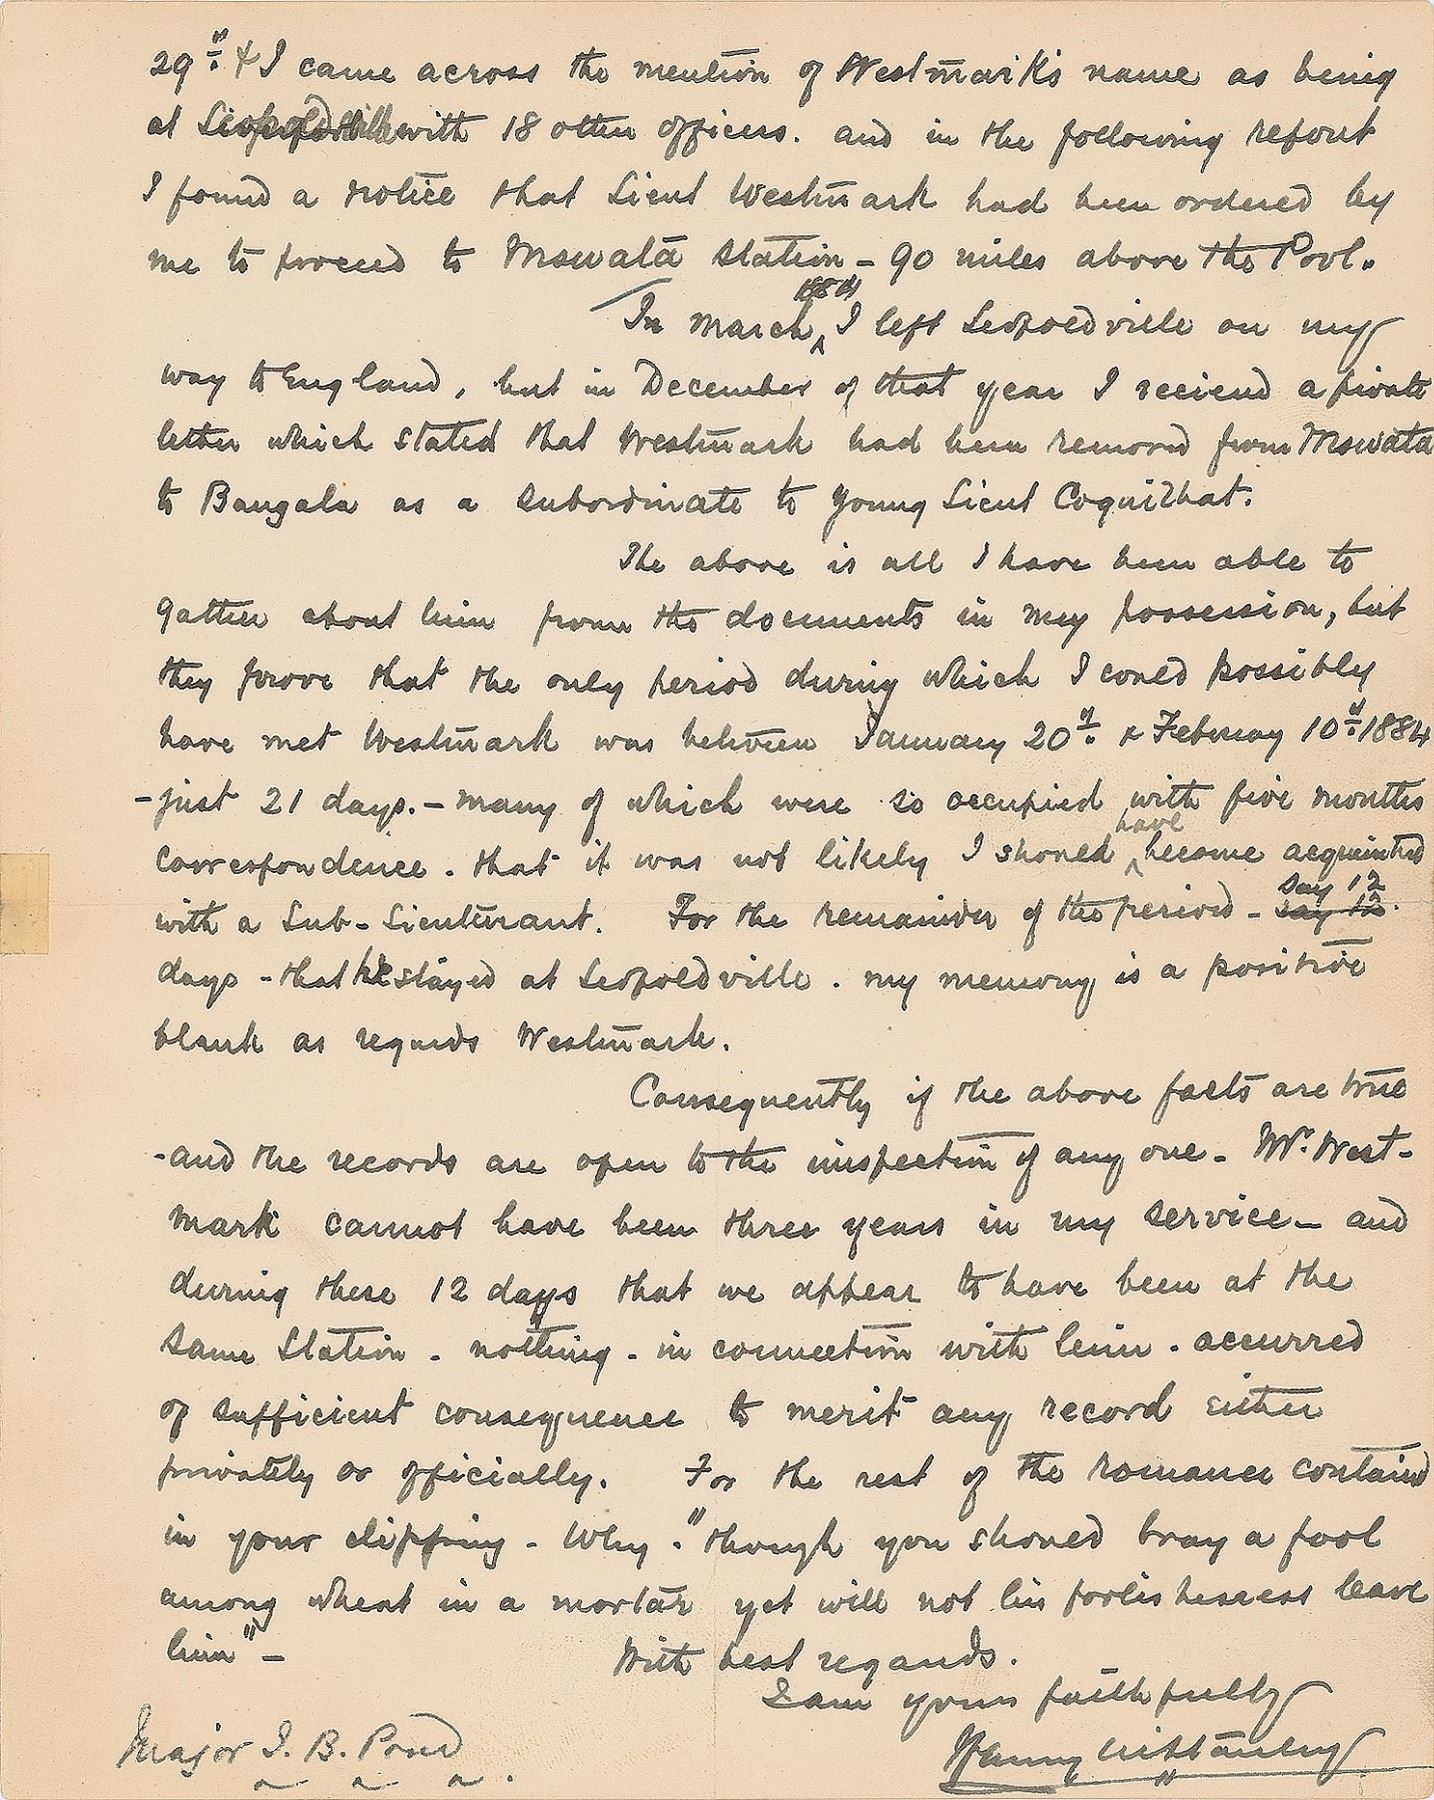 29th & I came across the mention of Westmark's name as being
at Leopoldville with 18 other officers. and in the following report
I found a notice that Lieut Westmark had been ordered by
me to proceed to Mswata Station - 90 miles above the Pool.
1884
In March ‸ I left Leopoldville on my
way to England, but in December of that year I recieved a private
letter which stated that Westmark had been removed from Mswata
to Bangala as a subordinate to young Lieut Coquilhat.
The above is all I have been able to
gather about him from the documents in my possession, but
they prove that the only period during which I could possibly
have met Westmark was between January 20th & February 10th 1884
- just 21 days. - many of which were so occupied with five months
have
correspondence. that it was not likely I should ‸ become acquainted
with a Sub-Lieutenant. For the remainder of the period - say 12
say 12.
days - that he stayed at Leopoldville. my memory is a positive
blank as regards Westmark.
Consequently if the above facts are true
- and the records are open to the inspection of any one - Mr. West-
mark cannot have been three years in my service - and
during these 12 days that we appear to have been at the
same Station - nothing - in connection with him - occurred
of sufficient consequence to merit any record either
privately or officially. For the rest of the romance contained
in your clipping - Why. "though you should bray a fool
among wheat in a mortar yet will not his foolishness leave
him" -
With best regards.
I am yours faithfully
Henry M Stanley
Major J. B. Pond